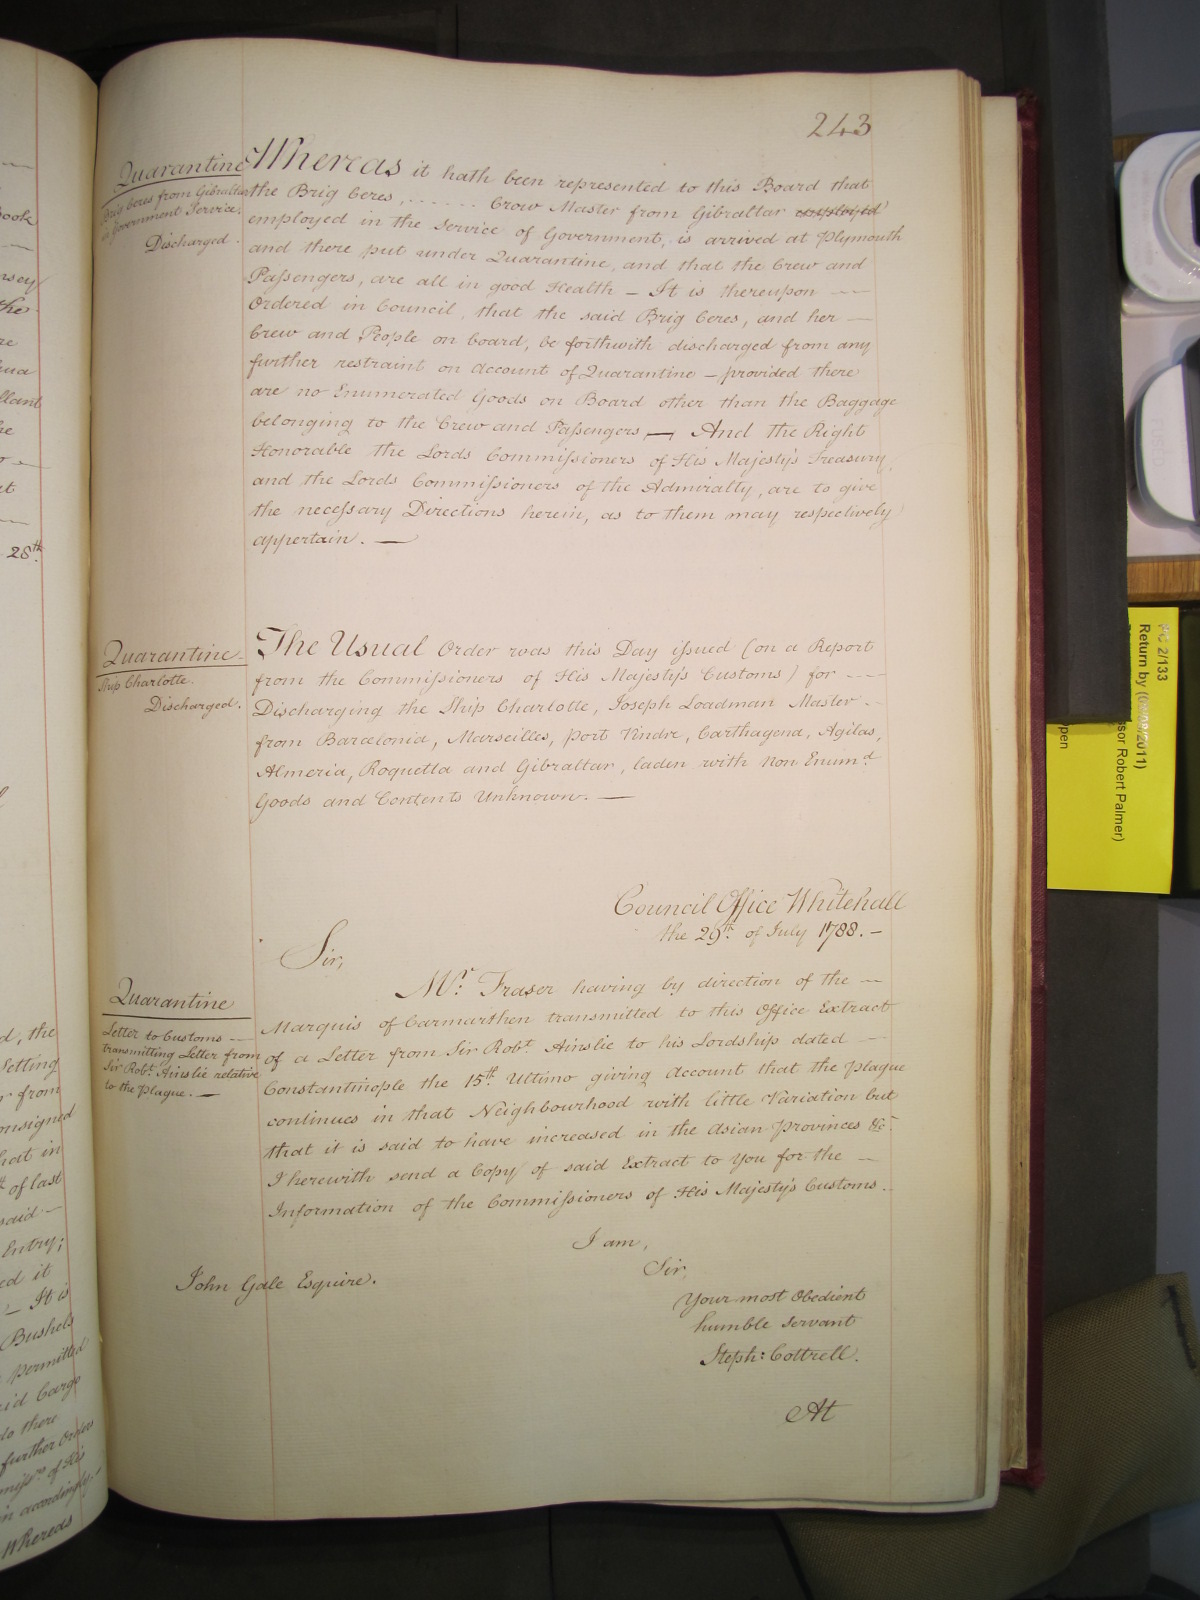 243
Quarantine
Brig Ceres from Gibraltar
in Government Service.
Discharged.
Whereas it hath been represented to this Board that
the Brig Ceres, ...... Crow Master from Gibraltar employed
employed in the Service of Government, is arrived at Plymouth
and there put under Quarantine, and that the Crew and
Passengers, are all in good Health — It is thereupon —
Ordered in Council, that the said Brig Ceres, and her —
Crew and People on board, be forthwith discharged from any
further restraint on account of Quarantine — provided there
are no Enumerated Goods on Board other than the Baggage
belonging to the Crew and Passengers — And the Right
Honorable the Lords Commissioners of His Majesty's Treasury,
and the Lords Commissioners of the Admiralty, are to give
the necessary Directions herein, as to them may respectively
appertain. —
Quarantine
Ship Charlotte.
Discharged.
The Usual Order was this Day issued (on a Report
from the Commissioners of His Majesty's Customs) for —
Discharging the Ship Charlotte, Joseph Loadman Master —
from Barcelonia, Marseilles, Port Vindre, Carthagena, Agilas,
Almeria, Roquetta and Gibraltar, laden with Non Enum.d
Goods and Contents Unknown. —
Council Office Whitehall
the 29th. of July 1788. —
Sir,
Quarantine
Letter to Customs —
transmitting Letter from
Sir Robt. Ainslie relative
to the Plague. —
Mr. Fraser having by direction of the —
Marquis of Carmarthen transmitted to this Office Extract
of a Letter from Sir Robt. Ainslie to his Lordship dated —
Constantinople the 15th. Ultimo giving Account that the Plague
continues in that Neighbourhood with little Variation but
that it is said to have increased in the Asian Provinces &c.
I herewith send a Copy of said Extract to You for the —
Information of the Commissioners of His Majesty's Customs.
I am,
Sir,
Your most Obedient
humble Servant
Steph: Cottrell.
John Gale Esquire.
At
28th.
the
llant
d, the
Setting
r from
onsigned
hat in
of last
said —
Entry;
ed it
— It is
Bushels
Permitted
Cargo
do there
further Orders
of His
in accordingly.
Whereas
PC 2/133
Return by (09/08/2011)
ssor Robert Palmer)
pen